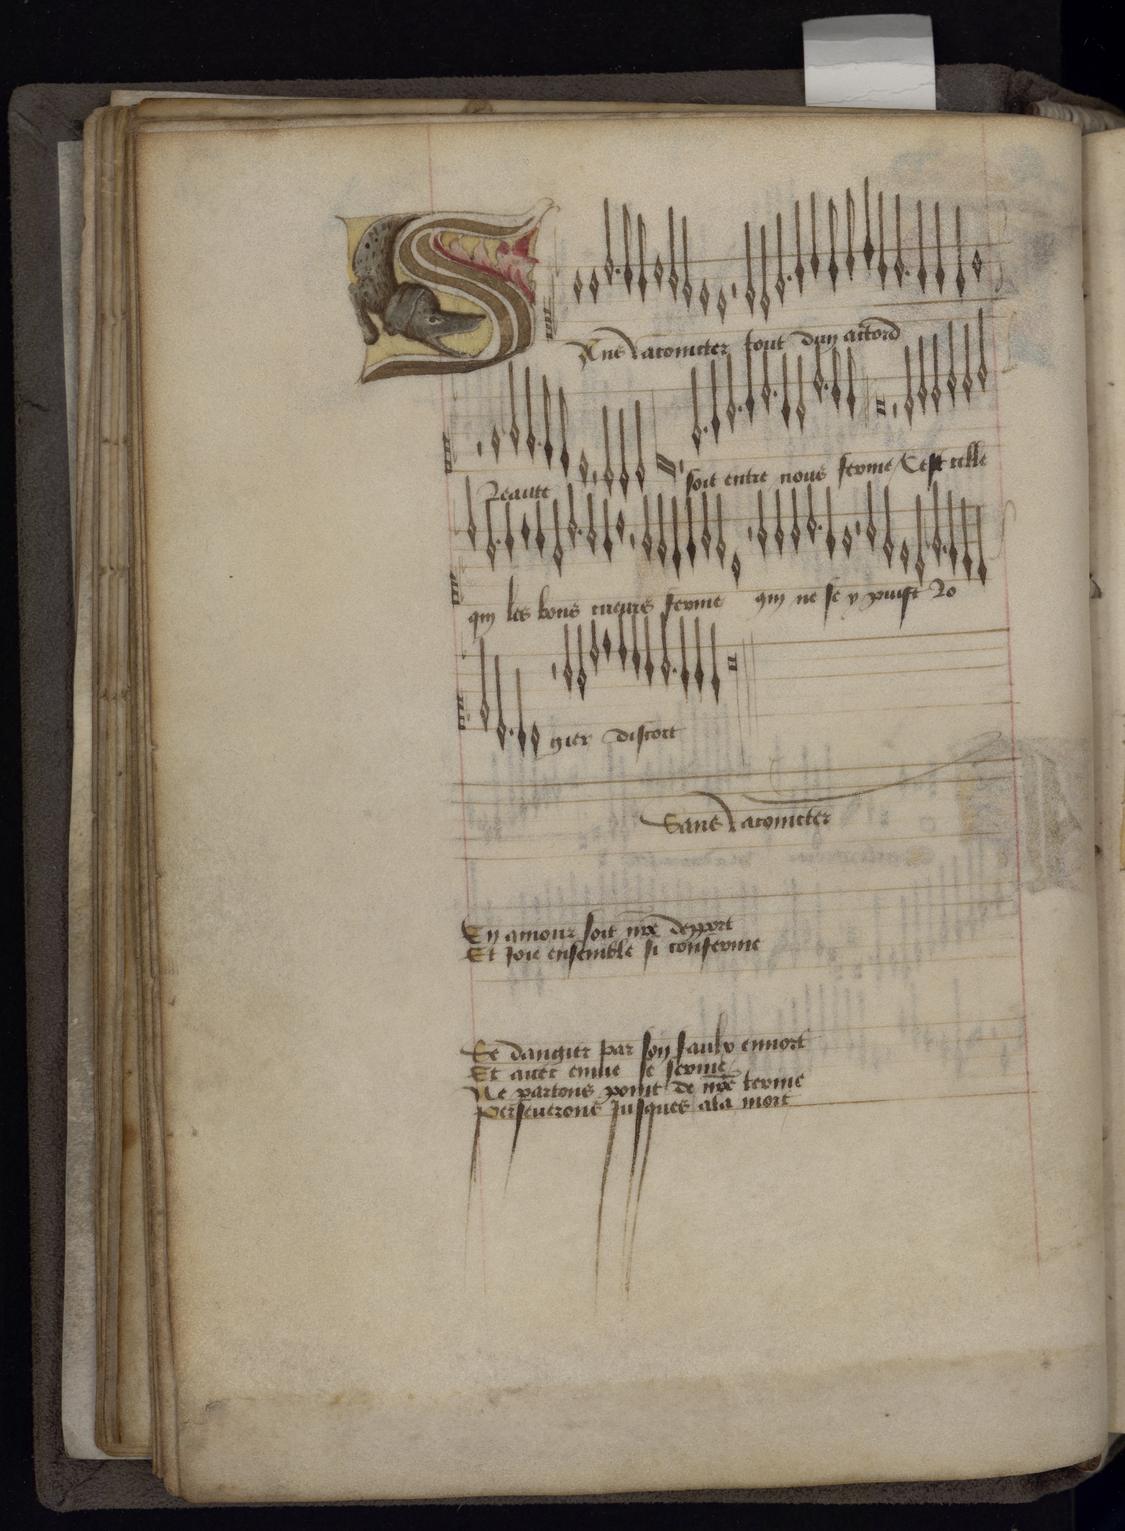 Ans
tout dun accord
Leaute soit entre nous ferme / Cest celle
qui les bons cueurs ferme qui ne se y puist
gier discort
Sans
En amour soit nre deport
Et Joie ensemble si conferme
Se dangier par son faulx enhort
Et avec envie se ferme
Ne partons point de nre terme
perseverons Jusques ala mort